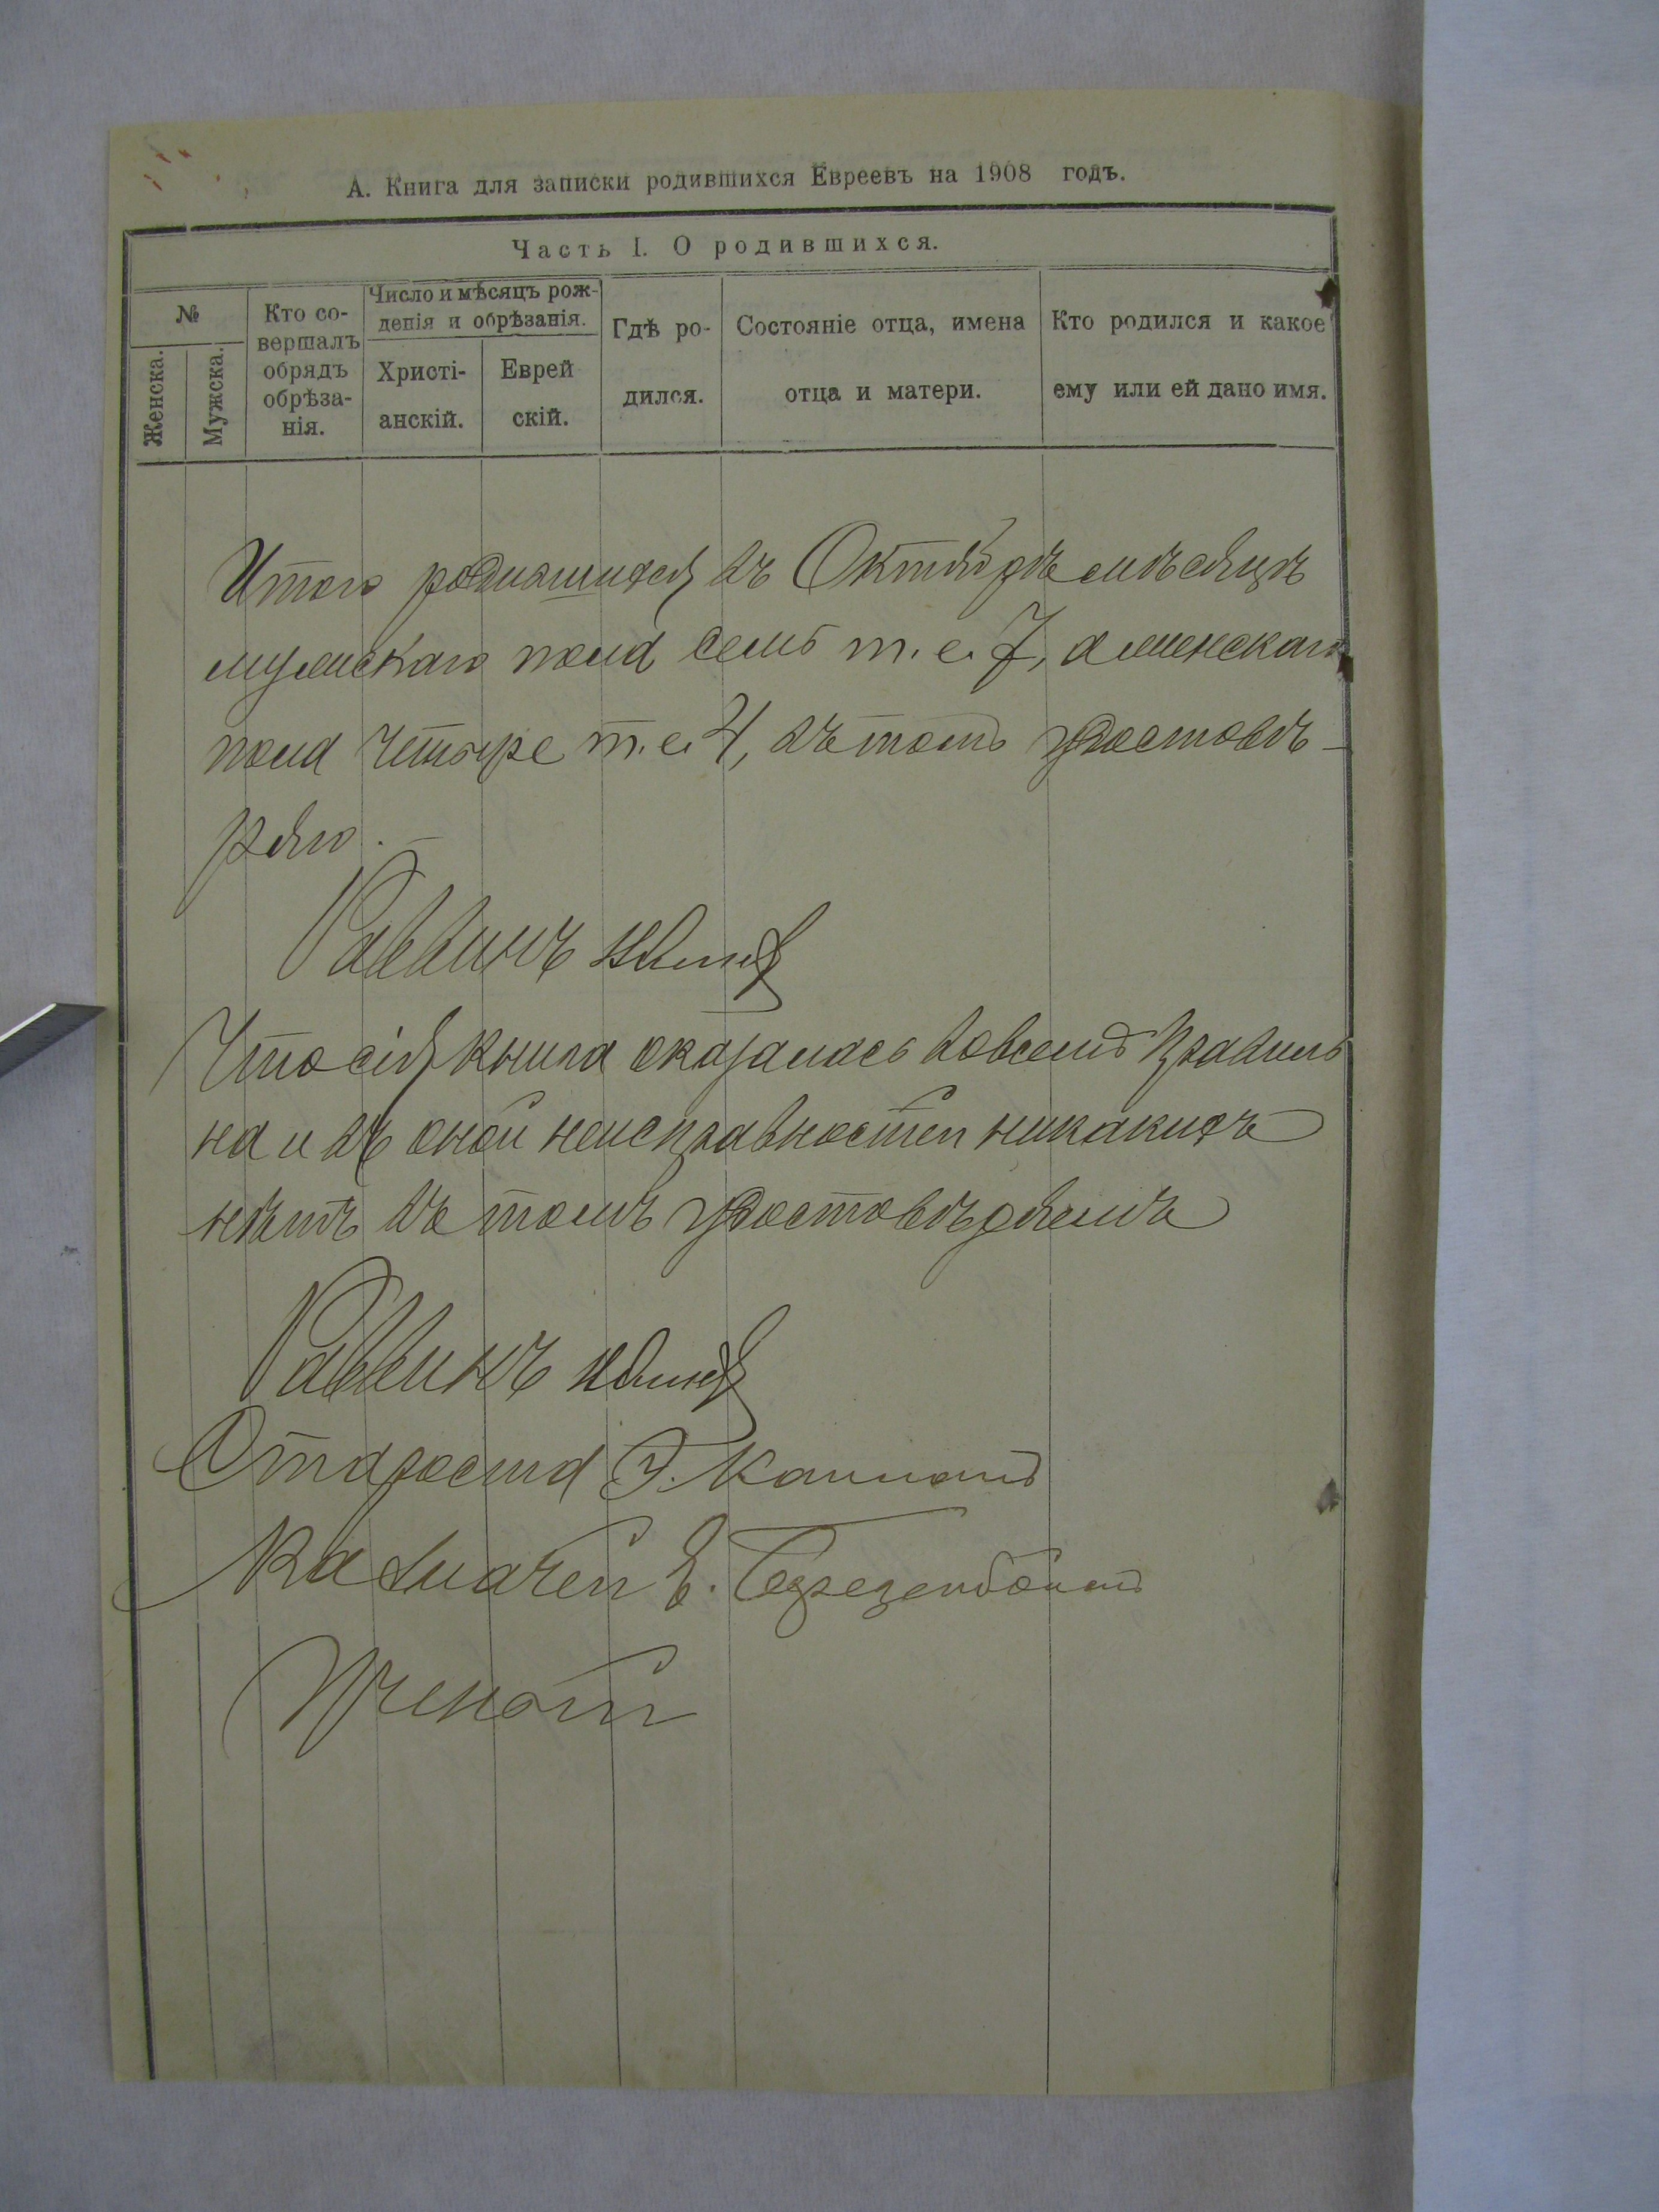 А. Книга для записки родившихся Евреевъ на 1908 годъ.
Часть I. О родившихся.
№
Женска.
Мужска.
Кто со-
вершалъ
обрядъ
обрѣза-
нія.
Число и мѣсяцъ рож-
денія и обрѣзанія.
Христі-
анскій.
Еврей
скій.
Гдѣ ро-
дился.
Состояніе отца, имена
отца и матери.
Кто родился и какое
ему или ей дано имя.
Итого родившихся въ Октябрѣ мѣсяцѣ
мужскаго пола семь т. е. 7, а женскаго
пола четыре т. е. 4, въ томъ удостовѣ-
ряю.
Раввинъ
Что сія книга оказалась вовсемъ правиль
на и въ оной неисправностей никакихъ
нѣтъ въ томъ удостовѣряемъ
Раввинъ
Староста Э.
Казначей Е.
Ученой